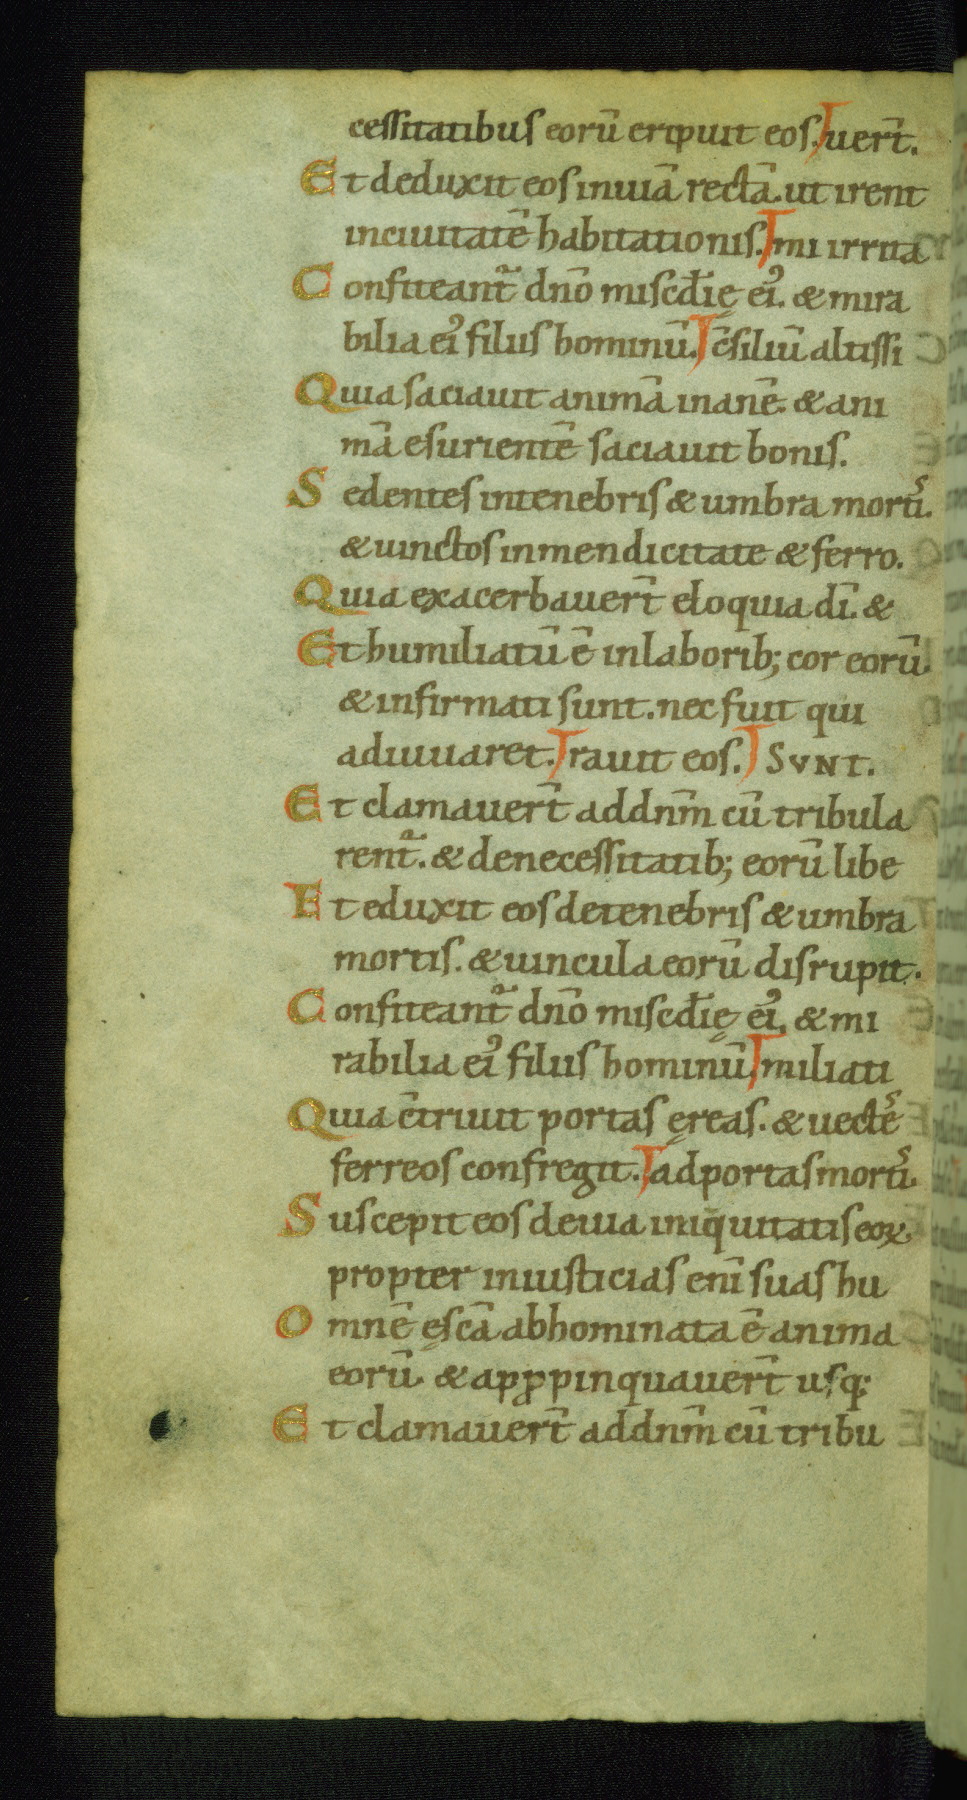 cessitatibus eorū eripuit eos. uer̄t.
Et deduxit eos inuiā rectā. ut irent
inciuitatē habitationis. mi irrita
Confiteant᷑ dn̄o misc̄dię ei᷒. & mira
bilia ei᷒ filiis hominū. c̄siliū altissi
Quia saciauit animā inanē. & ani
mā esurientē saciauit bonis.
Sedentes intenebris & umbra mortiᷤ.
& uinctos inmendicitate & ferro.
Quia exacerbauer̄t eloquia dī. &
Et humiliatū ē inlaborib; cor eorū.
& infirmati sunt. nec fuit qui
adiuuaret. rauit eos. SVNT.
Et clamauer̄t addn̄m cū tribula
rent᷑. & denecessitatib; eorū libe
Et eduxit eos detenebris & umbra
mortis. & uincula eorū disrupit.
Confiteant᷑ dn̄o misc̄dię ei᷒. & mi
rabilia ei᷒ filiis hominū. miliati
Quia c̄triuit portas ęreas. & uecteᷤ
ferreos confregit. adportas mortiᷤ.
Suscepit eos deuia iniquitatis eoꝝ.
propter iniusticias enī suas hu
Omnē ęscā abhominata ē anima
eorū. & apꝓpinquauer̄t usq;
Et clamauer̄t addn̄m cū tribu